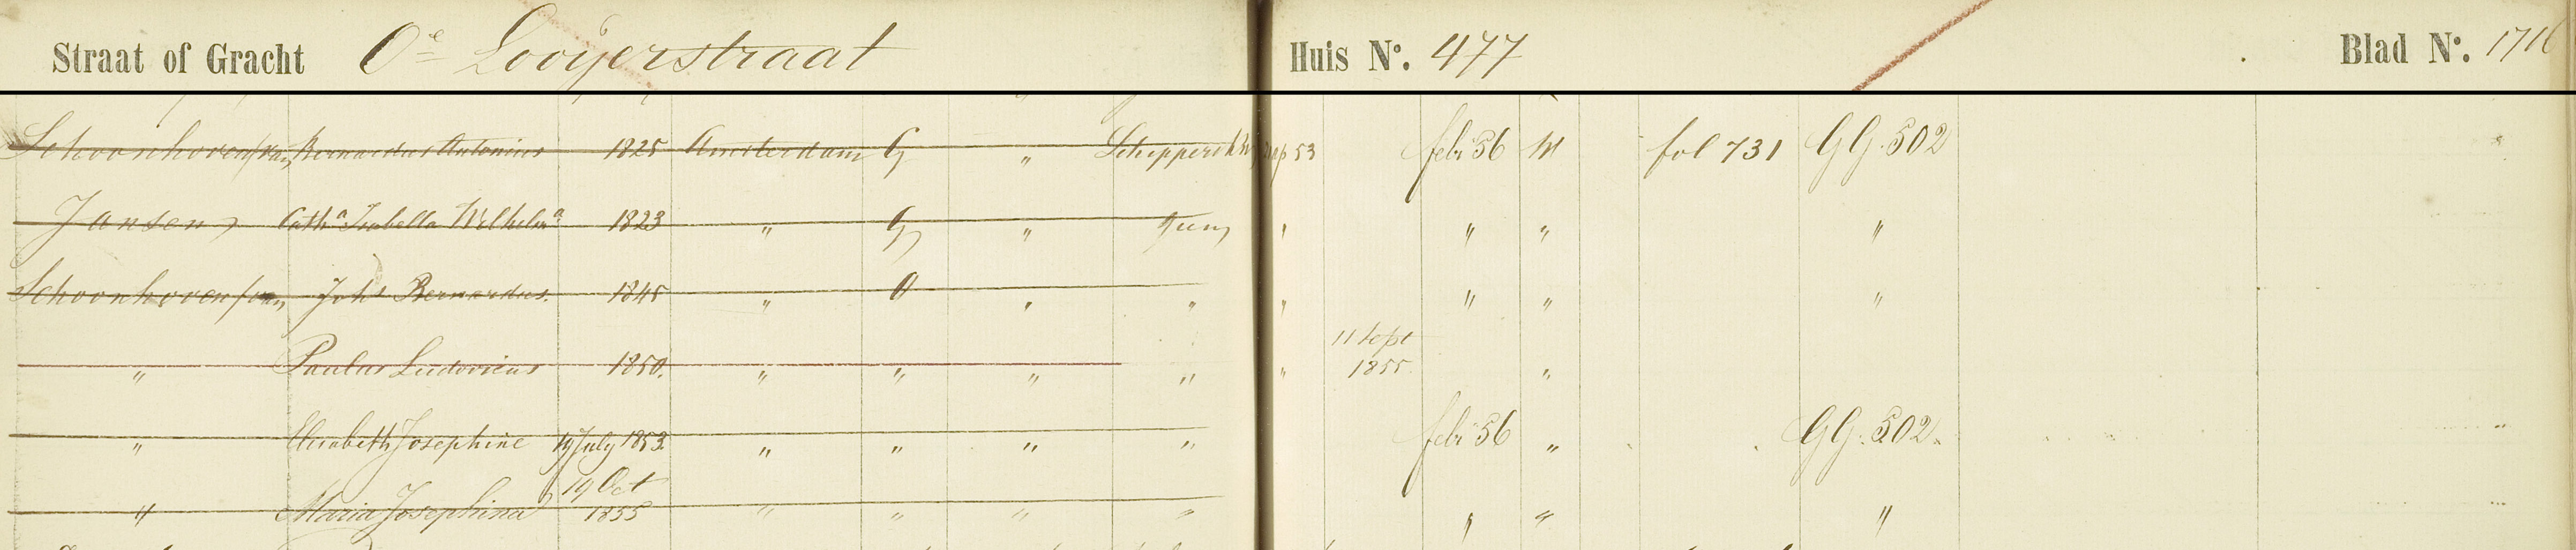 Straat of Gracht Oe Looijerstraat Huis No. 477 Blad No. 1716
Schoonhoven (van Bernardus Antonius 1825 Amsterdam G „ Schippersk 53 feb 56 M fol 731 GG. 502
Jansen Catha Isabella Wilhelma 1823 „ G „ geen „ „ „ „
Schoonhoven (van Johs Bernardus 1845 „ O „ „ „ „ „ „
11 Sept
„ Paulus Ludovicus 1850. „ „ „ „ „ 1855 „
„ Elisabeth Josephine 19 July 1853 „ „ „ „ feb 56 „ GG. 502.
19 Oct
„ Maria Josephina 1855 „ „ „ „ „ „ „